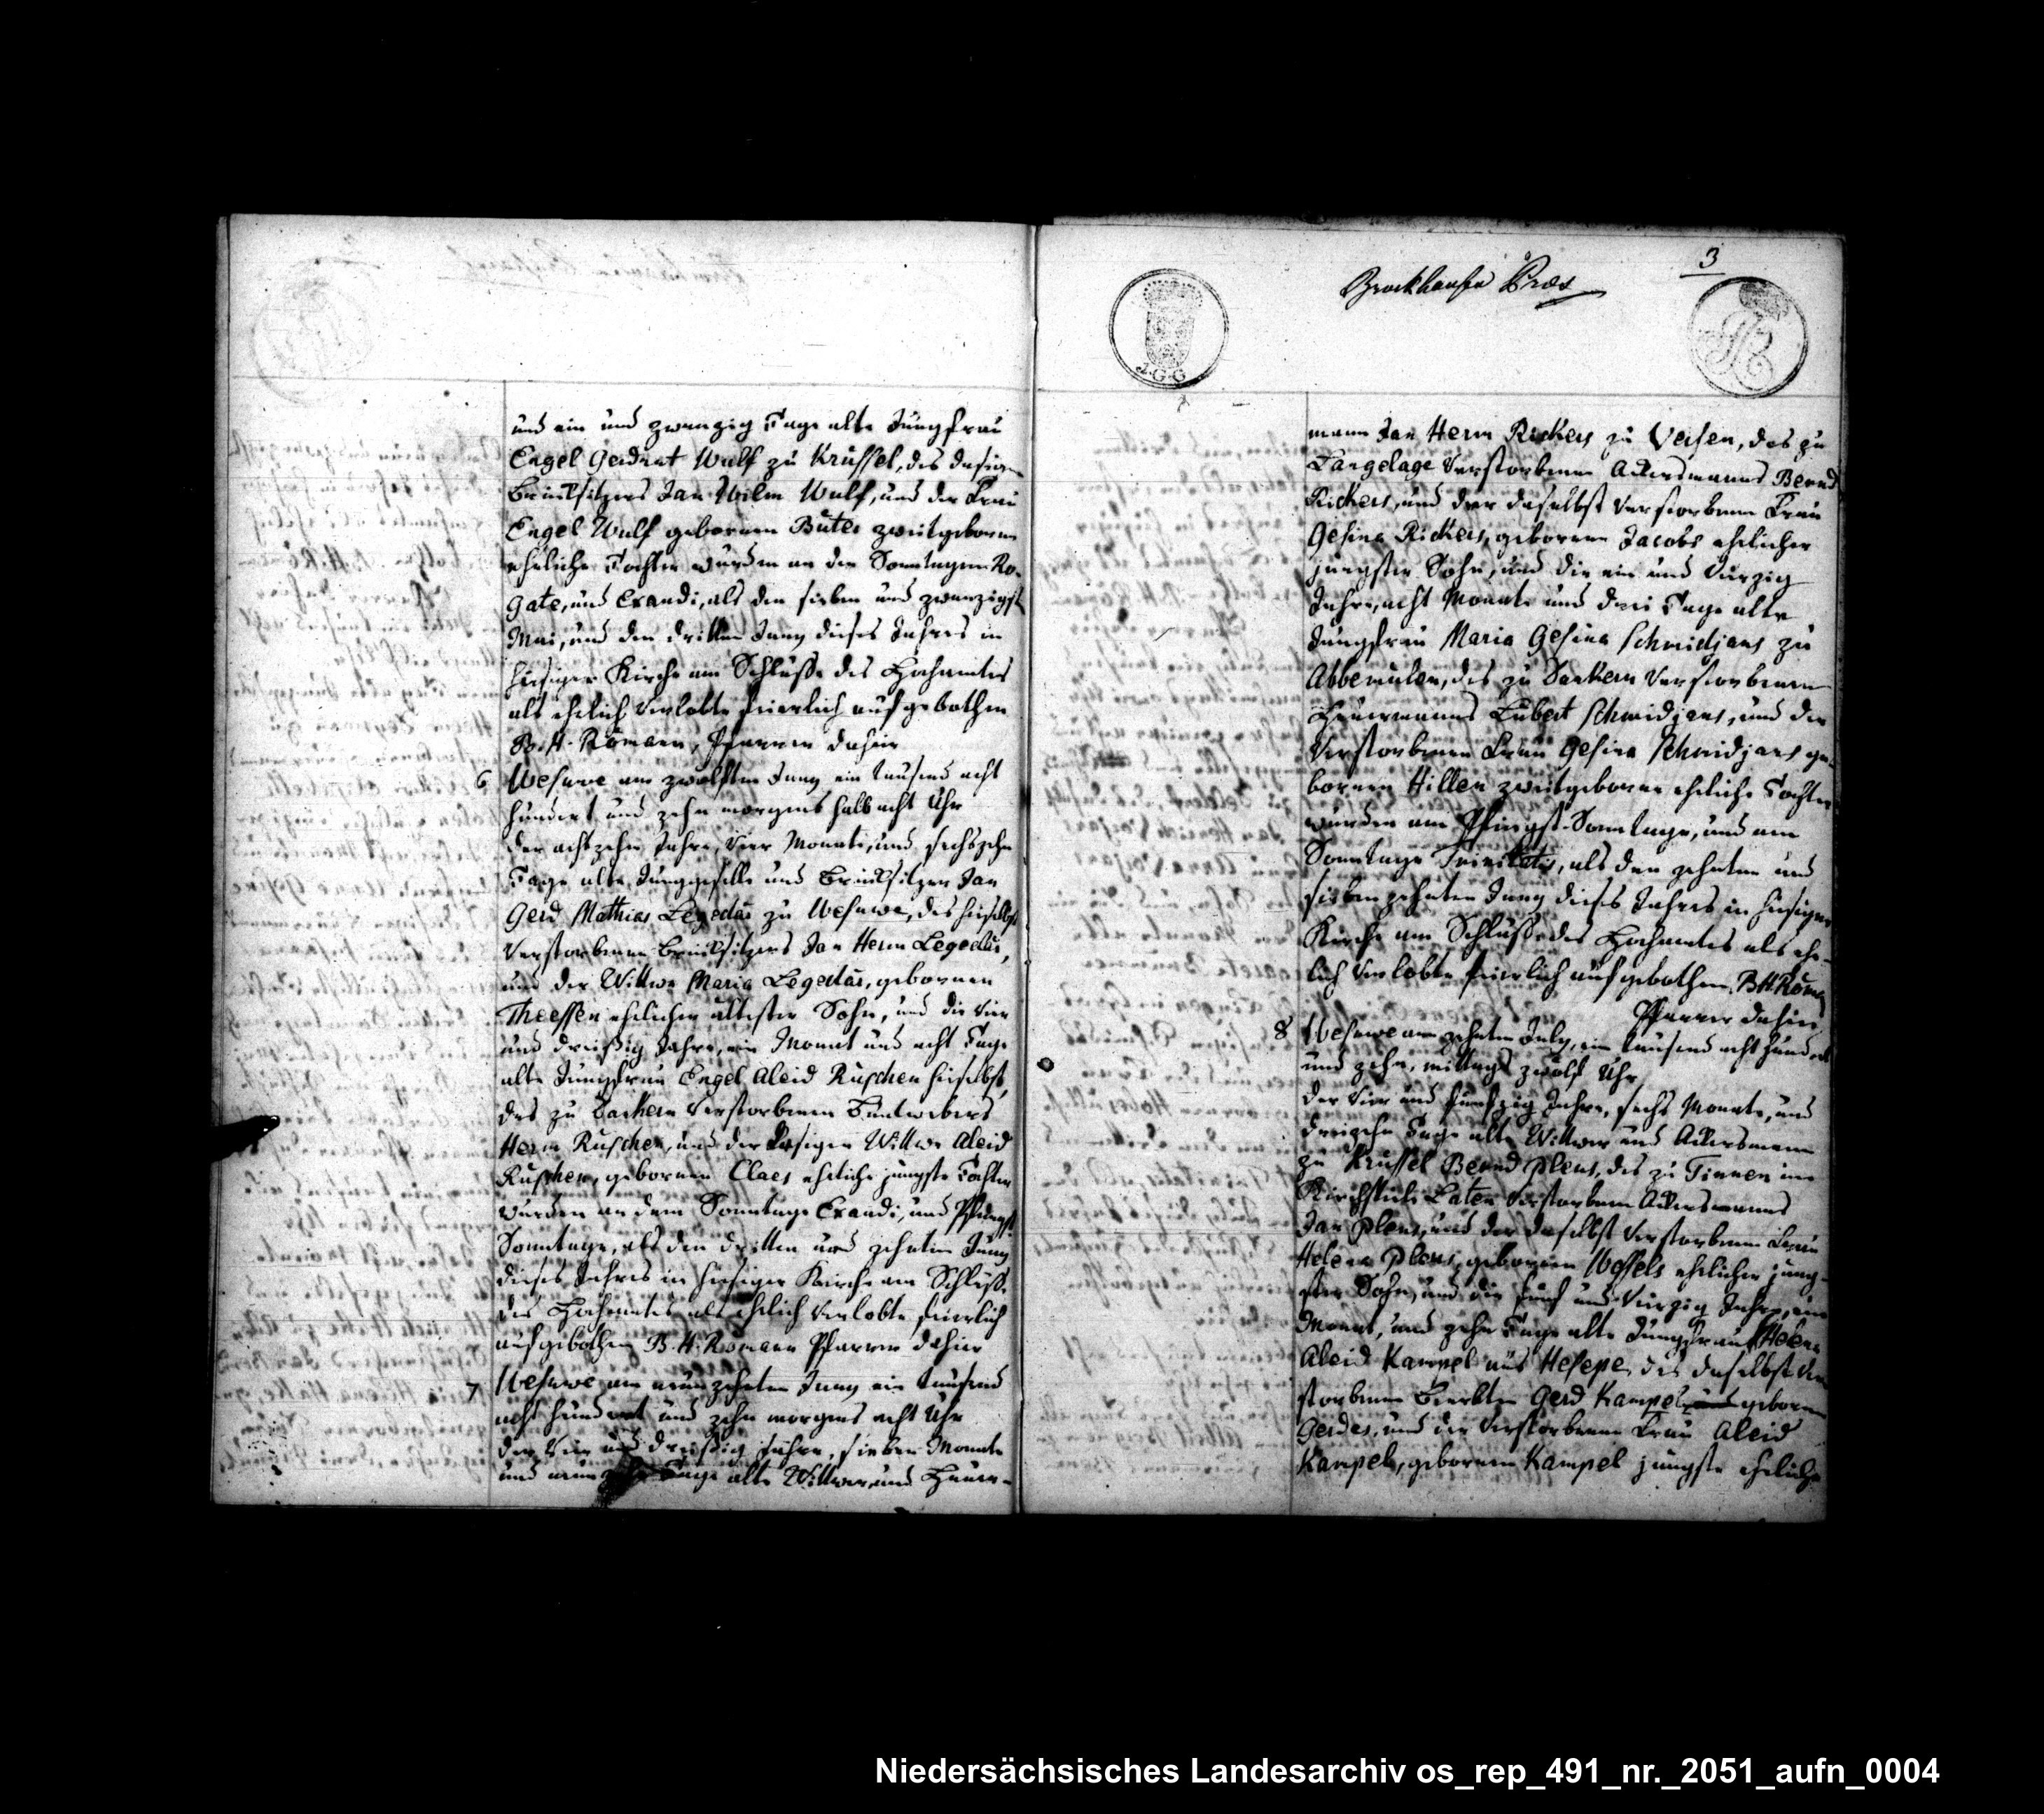 und ein und zwanzig Tage alte Jungfrau
Engel Gerdrut Wulf zu Krüssel, des dasigen
Brinksitzers Jan Wilm Wulf, und der Frau
Engel Wulf gebornen Büter zweitgeborne
eheliche Tochter wurden an den Sonntagen Ro-
gate, und Exaudi, als den sieben und zwanzigst
Mai, und den dritten Juny dieses Jahres in
hiesiger Kirche am Schlusse des Hochamtes
als ehelich Verlobte feierlich aufgebothen
B. H. Römann, Pfarrer dahier
6 Wesuwe am zwölften Juny ein tausend acht
hundert und zehn morgens halb acht Uhr
der achtzehn Jahre, vier Monate, und sechszehn
Tage alte Junggeselle und Brinksitzer Jan
Gerd Mathias Legedus zu Wesuwe, des hieselbst
verstorbenen Brinksitzers Jan Herm Legedus,
und der Wittwe Maria Legedus, gebornen
Theessen ehelicher ältester Sohn, und die vier
und dreißig Jahre, ein Monat und acht Tage
alte Jungfrau Engel Aleid Ruschen hieselbst,
des zu verstorbenen
Herm Ruschen, und der dasigen Wittwe Aleid
Ruschen, gebornen Claes eheliche jüngste Tochter
wurden an dem Sonntage Exaudi, und Pfingst
Sonntage, als den dritten und zehnten Juny
dieses Jahres in hiesiger Kirche am Schlusse
des Hochamtes als ehelich Verlobte feierlich
aufgebothen B. H. Römann Pfarrer dahier
7 Wesuwe am neunzehnten Juny ein tausend
acht hundert und zehn morgens acht Uhr
der vier und dreißig Jahre, sieben Monate
und neunzehn Tage alte Wittwer und Heuer-
3
Brockhausen Præs
J.G.G
mann Jan Herm Rickers zu Versen, des zu
Tangelage verstorbenen Ackersmanns Bernd
Rickers, und der daselbst verstorbenen Frau
Gesina Rickers, gebornen Jacobs ehelicher
jüngster Sohn, und die ein und vierzig
Jahre, acht Monate und drei Tage alte
Jungfrau Maria Gesina Schmidjans zu
Abbemülen, des zu Dankern verstorbenen
Heuermanns Lubert Schmidjans, und der
verstorbenen Frau Gesina Schmidjans ge-
bornen Hillen zweitgeborne eheliche Tochter
wurden am Pfingst-Sonntage, und am
Sonntage Trinitatis, als den zehnten und
siebenzehnten Juny dieses Jahres in hiesiger
Kirche am Schlusse des Hochamtes als ehe-
lich Verlobte feierlich aufgebothen. B H. Röman
Pfarrer dahier
8 Wesuwe am zehnten July, ein tausend acht hundert
und zehn, mittags zwölf Uhr
der vier und funfzig Jahre, sechs Monate, und
dreizehn Tage alte Wittwer und Ackersmann
zu Krüssel Bernd Plens, des zu Tinnen im
Kirchspiele Laten verstorbenen Ackersmanns
Jan Plens, und der daselbst verstorbenen Frau
Helena Plens, gebornen Wessels ehelicher jüng-
ster Sohn, und die fünf und vierzig Jahre, ein
Monat, und zehn Tage alte Jungfrau Helena
Aleid Kampel aus Hesepe, des daselbst ver
storbenen Gerd Kampel gebornen
Gerdes, und der verstorbenen Frau Aleid
Kampel, gebornen Kampel jüngste eheliche
Niedersächsisches Landesarchiv os_rep_491_nr._2051_aufn_0004